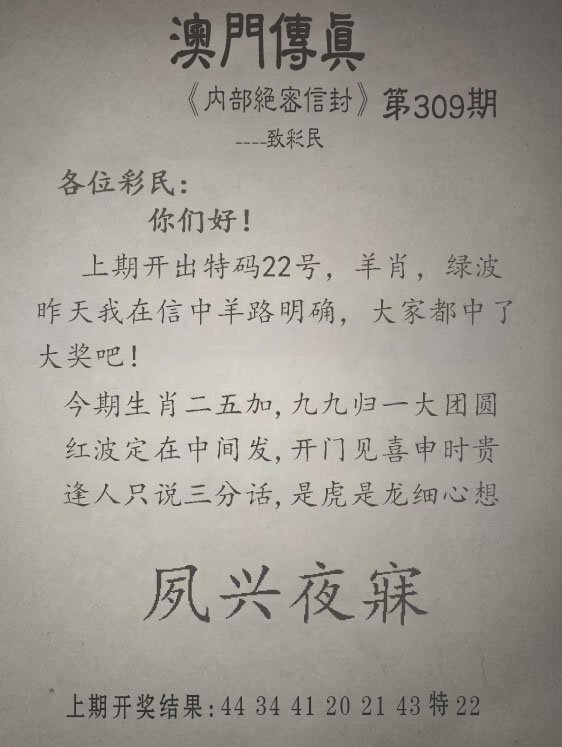 澳門傳眞
《内部絕密信封》第309期
----致彩民
各位彩民：
你们好！
上期开出特码22号，羊肖，绿波
昨天我在信中羊路明确，大家都中了
大奖吧！
今期生肖二五加，九九归一大团圆
红波定在中间发，开门见喜申时贵
逢人只说三分话，是虎是龙细心想
夙兴夜寐
上期开奖结果：44 34 41 20 21 43 特 22